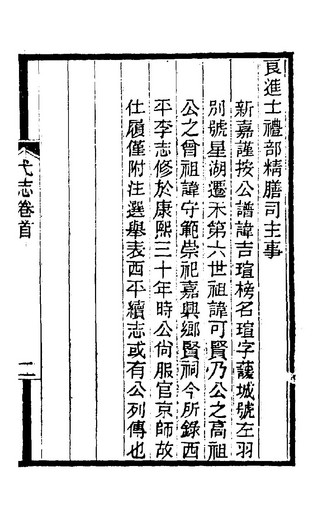 良進士禮部精膳司主事
新嘉謹按公譜諱吉瑄榜名瑄字護城號左羽
別號星湖遷禾第六世祖諱可賢乃公之高祖
公之曾祖諱守範崇祀嘉興鄉賢祠今所錄西
平李志修於康熙三十年時公尙服官京師故
仕履僅附注選舉表西平續志或有公列傳也
代志卷首
二